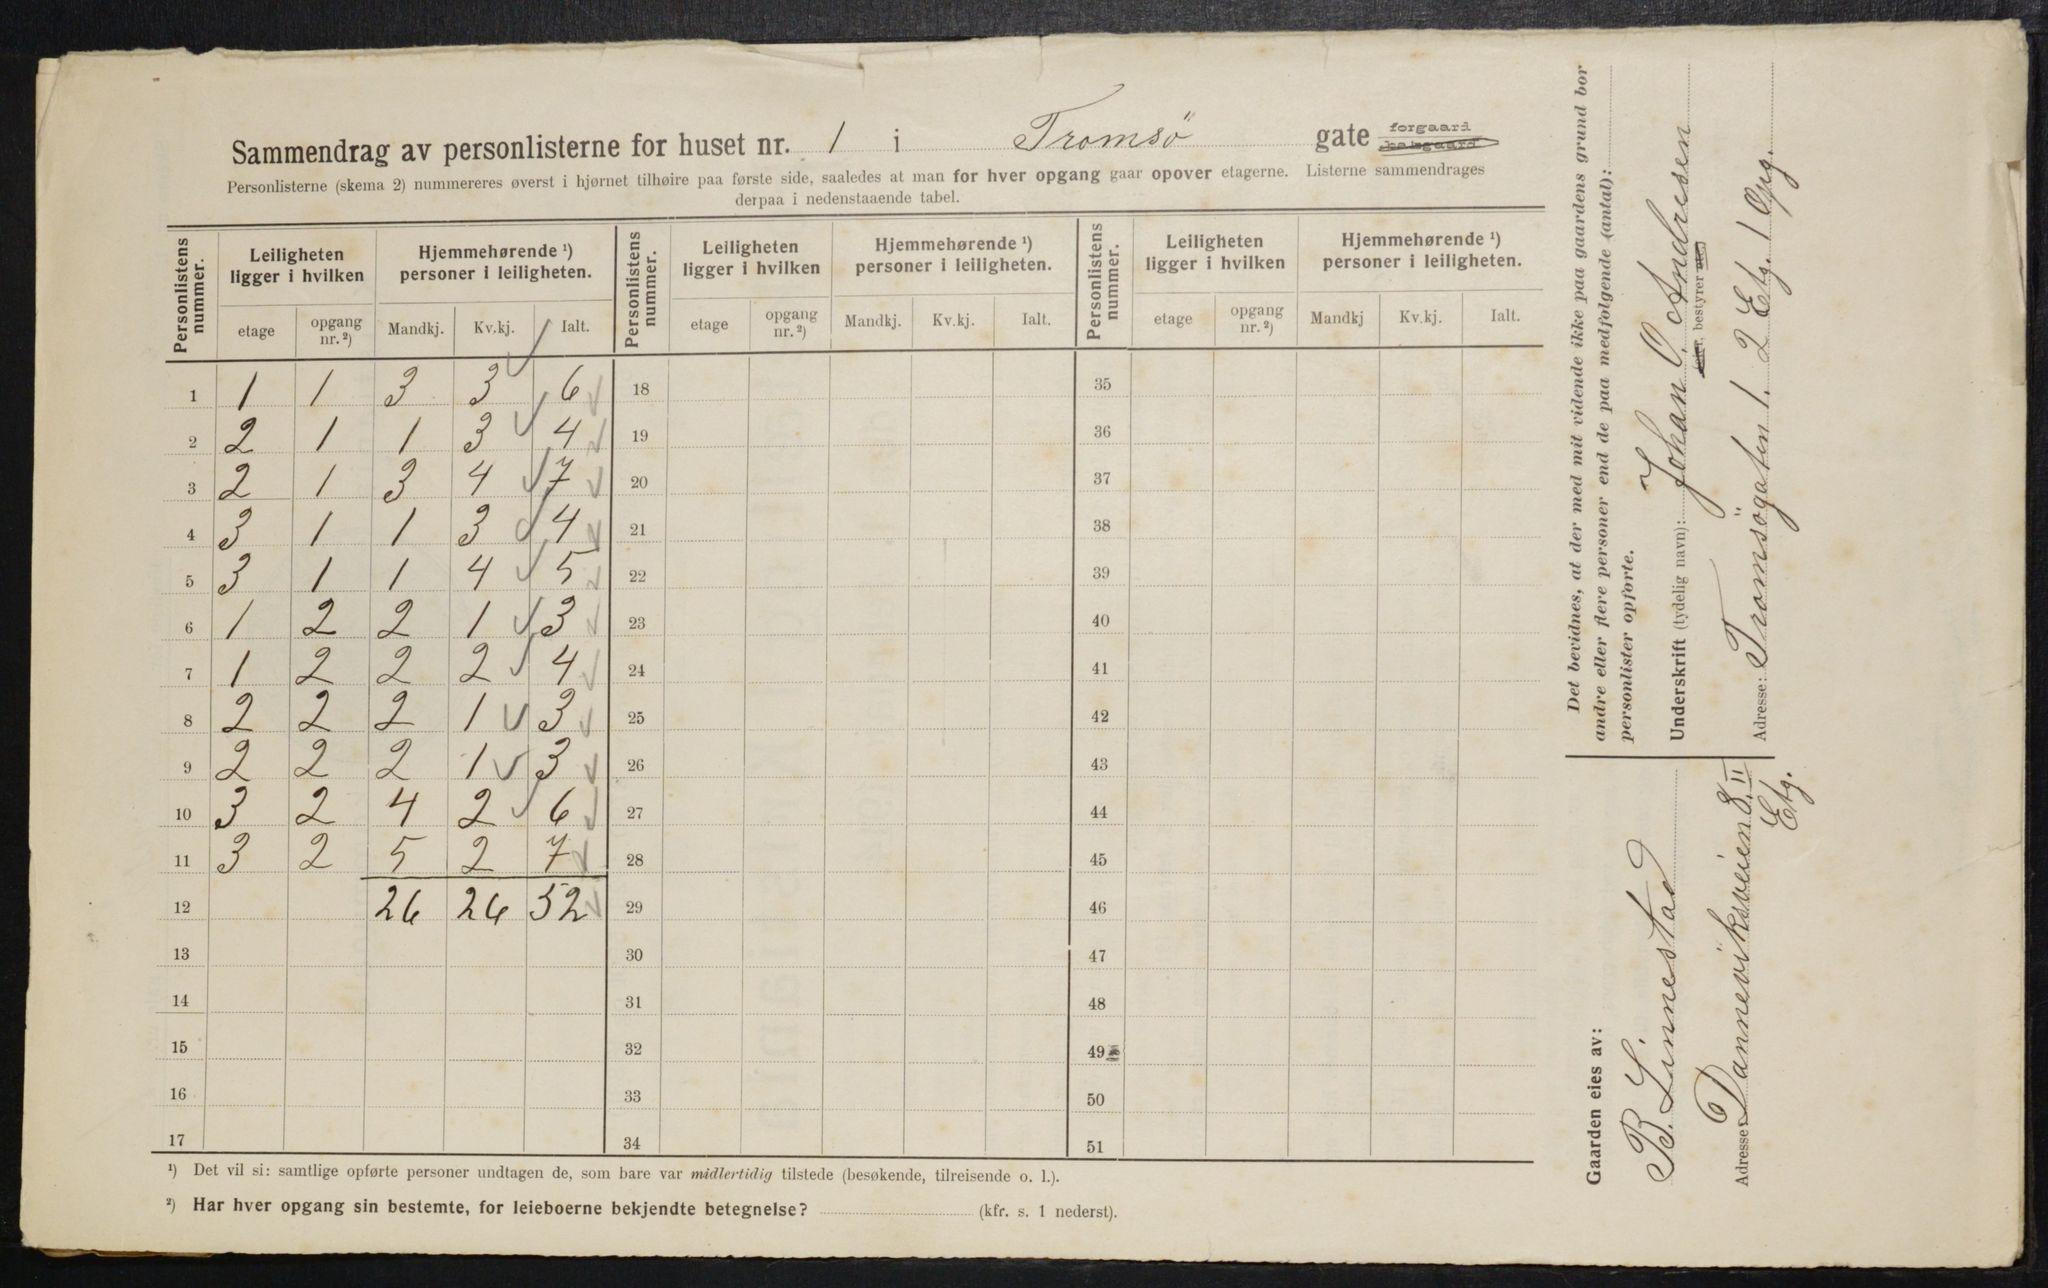 Sammendrag av personlisterne for huset nr. 1 i Tromsø gate forgaard bakgaard
Personlisterne (skema 2) nummereres øverst i hjørnet tilhøire paa første side, saaledes at man for hver opgang gaar opover etagerne. Listerne sammendrages
derpaa i nedenstaaende tabel.
Personlistens nummer. Leiligheten ligger i hvilken Hjemmehørende ¹) personer i leiligheten. Personlistens nummer. Leiligheten ligger i hvilken Hjemmehørende ¹) personer i leiligheten. Personlistens nummer. Leiligheten ligger i hvilken Hjemmehørende ¹) personer i leiligheten.
etage opgang nr. ²) Mandkj. Kv.kj. Ialt. etage opgang nr. ²) Mandkj. Kv.kj. Ialt. etage opgang nr. ²) Mandkj Kv.kj. Ialt.
1 1 1 3 3 6 18 35
2 2 1 1 3 4 19 36
3 2 1 3 4 7 20 37
4 3 1 1 3 4 21 38
5 3 1 1 4 5 22 39
6 1 2 2 1 3 23 40
7 1 2 2 2 4 24 41
8 2 2 2 1 3 25 42
9 2 2 2 1 3 26 43
10 3 2 4 2 6 27 44
11 3 2 5 2 7 28 45
12 26 26 52 29 46
13 30 47
14 31 48
15 32 49
16 33 50
17 34 51
¹) Det vil si: samtlige opførte personer undtagen de, som bare var midlertidig tilstede (besøkende, tilreisende o. l.).
²) Har hver opgang sin bestemte, for leieboerne bekjendte betegnelse? (kfr. s. 1 nederst).
Det bevidnes, at der med mit vidende ikke paa gaardens grund bor
andre eller flere personer end de paa medfølgende (antal):
personlister opførte.
Underskrift (tydelig navn): Johan C. Andresen
eier, bestyrer
Adresse: Tromsögaten 1. 2 Etg. 1 Opg.
Gaarden eies av:
B. Linnestad
Adresse: Danneviksveien 8 II
Etg.